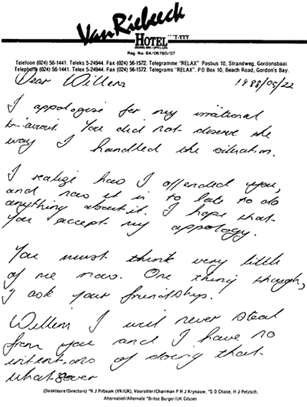 Van Riebeeck
HOTEL
Reg. No. 64/06780/07
Telefoon (024) 56-1441. Teleks 5-24944. Fax (024) 56-1572. Telegramme "RELAX" Posbus 10, Strandweg, Gordonsbaai.
Telephone (024) 56-1441. Telex 5-24944. Fax (024) 56-1572. Telegrams "RELAX". P O Box 10, Beach Road, Gordon's Bay.
Dear Willem 1988/05/22
I appologise for my irrational
behaviour. You did not deserve the
way I handled the situation.
I realize how I offended you,
and now it is to late to do
anything about it. I hope that
you accept my appology.
You must think very little
of me now. One thing though,
I ask your friendship.
Willem I will never steal
from you and I have no
intentions of doing that
whatsoever
(Direkteure/Directors) *R J Pribeam (VK/UK), Voorsitter/Chairman P H J Krynauw, *S D Chase, H J Petzsch.
Alternatief/Alternate *Britse Burger/UK Citizen